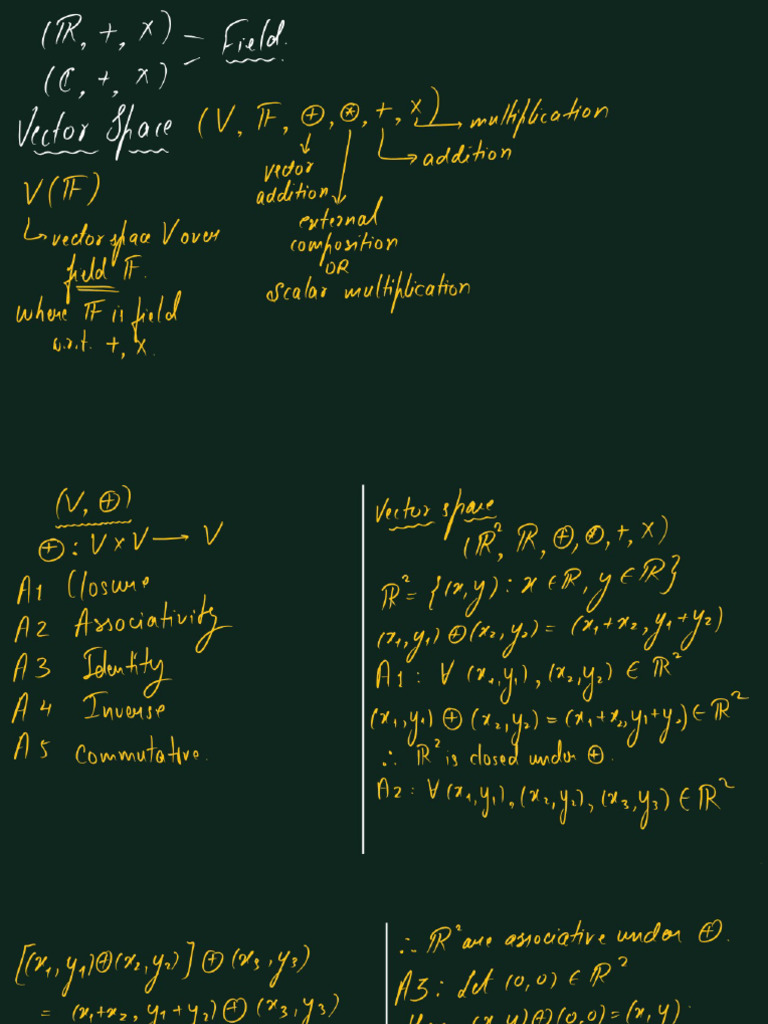 (ℝ, +, ×) = Field.
(ℂ, +, ×)
Vector Space (V, 𝔽, ⊕, ⊛, +, ×)
multiplication
addition
vector
addition
external
composition
OR
scalar multiplication
V(𝔽)
↳ vector space V over
field 𝔽.
where 𝔽 is field
w.r.t. +, ×.
(V, ⊕)
⊕ : V × V → V
A1 Closure
A2 Associativity
A3 Identity
A4 Inverse
A5 Commutative.
Vector space
(ℝ², ℝ, ⊕, ⊛, +, ×)
ℝ² = {(x, y) : x ∈ ℝ, y ∈ ℝ}
(x₁, y₁) ⊕ (x₂, y₂) = (x₁ + x₂, y₁ + y₂)
A1 : ∀ (x₁, y₁), (x₂, y₂) ∈ ℝ²
(x₁, y₁) ⊕ (x₂, y₂) = (x₁ + x₂, y₁ + y₂) ∈ ℝ²
∴ ℝ² is closed under ⊕.
A2 : ∀ (x₁, y₁), (x₂, y₂), (x₃, y₃) ∈ ℝ²
[(x₁, y₁) ⊕ (x₂, y₂)] ⊕ (x₃, y₃)
= (x₁ + x₂, y₁ + y₂) ⊕ (x₃, y₃)
∴ ℝ² are associative under ⊕.
A3 : Let (0, 0) ∈ ℝ²
(x, y) ⊕ (0, 0) = (x, y)